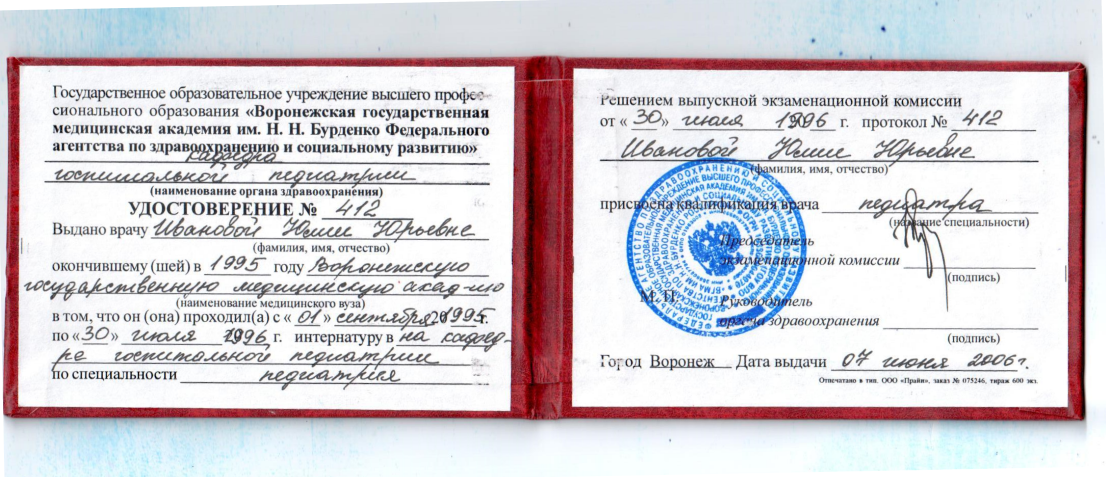 Государственное образовательное учреждение высшего профес-
сионального образования «Воронежская государственная
медицинская академия им. Н. Н. Бурденко Федерального
агентства по здравоохранению и социальному развитию»
кафедра
госпитальной педиатрии
(наименование органа здравоохранения)
УДОСТОВЕРЕНИЕ № 412
Выдано врачу Ивановой Юлии Юрьевне
(фамилия, имя, отчество)
окончившему (шей) в 1995 году Воронежскую
государственную медицинскую акад-ию
(наименование медицинского вуза)
в том, что он (она) проходил(а) с « 01 » сентября 1995 г.
по «30» июля 1996 г. интернатуру в на кафед-
ре госпитальной педиатрии
по специальности педиатрия
Решением выпускной экзаменационной комиссии
от « 30 » июля 1996 г. протокол № 412
Ивановой Юлие Юрьевне
(фамилия, имя, отчество)
присвоена квалификация врача педиатра
(название специальности)
Председатель
экзаменационной комиссии
(подпись)
М. П.
Руководитель
органа здравоохранения
(подпись)
Город Воронеж Дата выдачи 07 июня 2006г.
Отпечатано в тип. ООО «Прайн», заказ № 075246, тираж 600 экз.